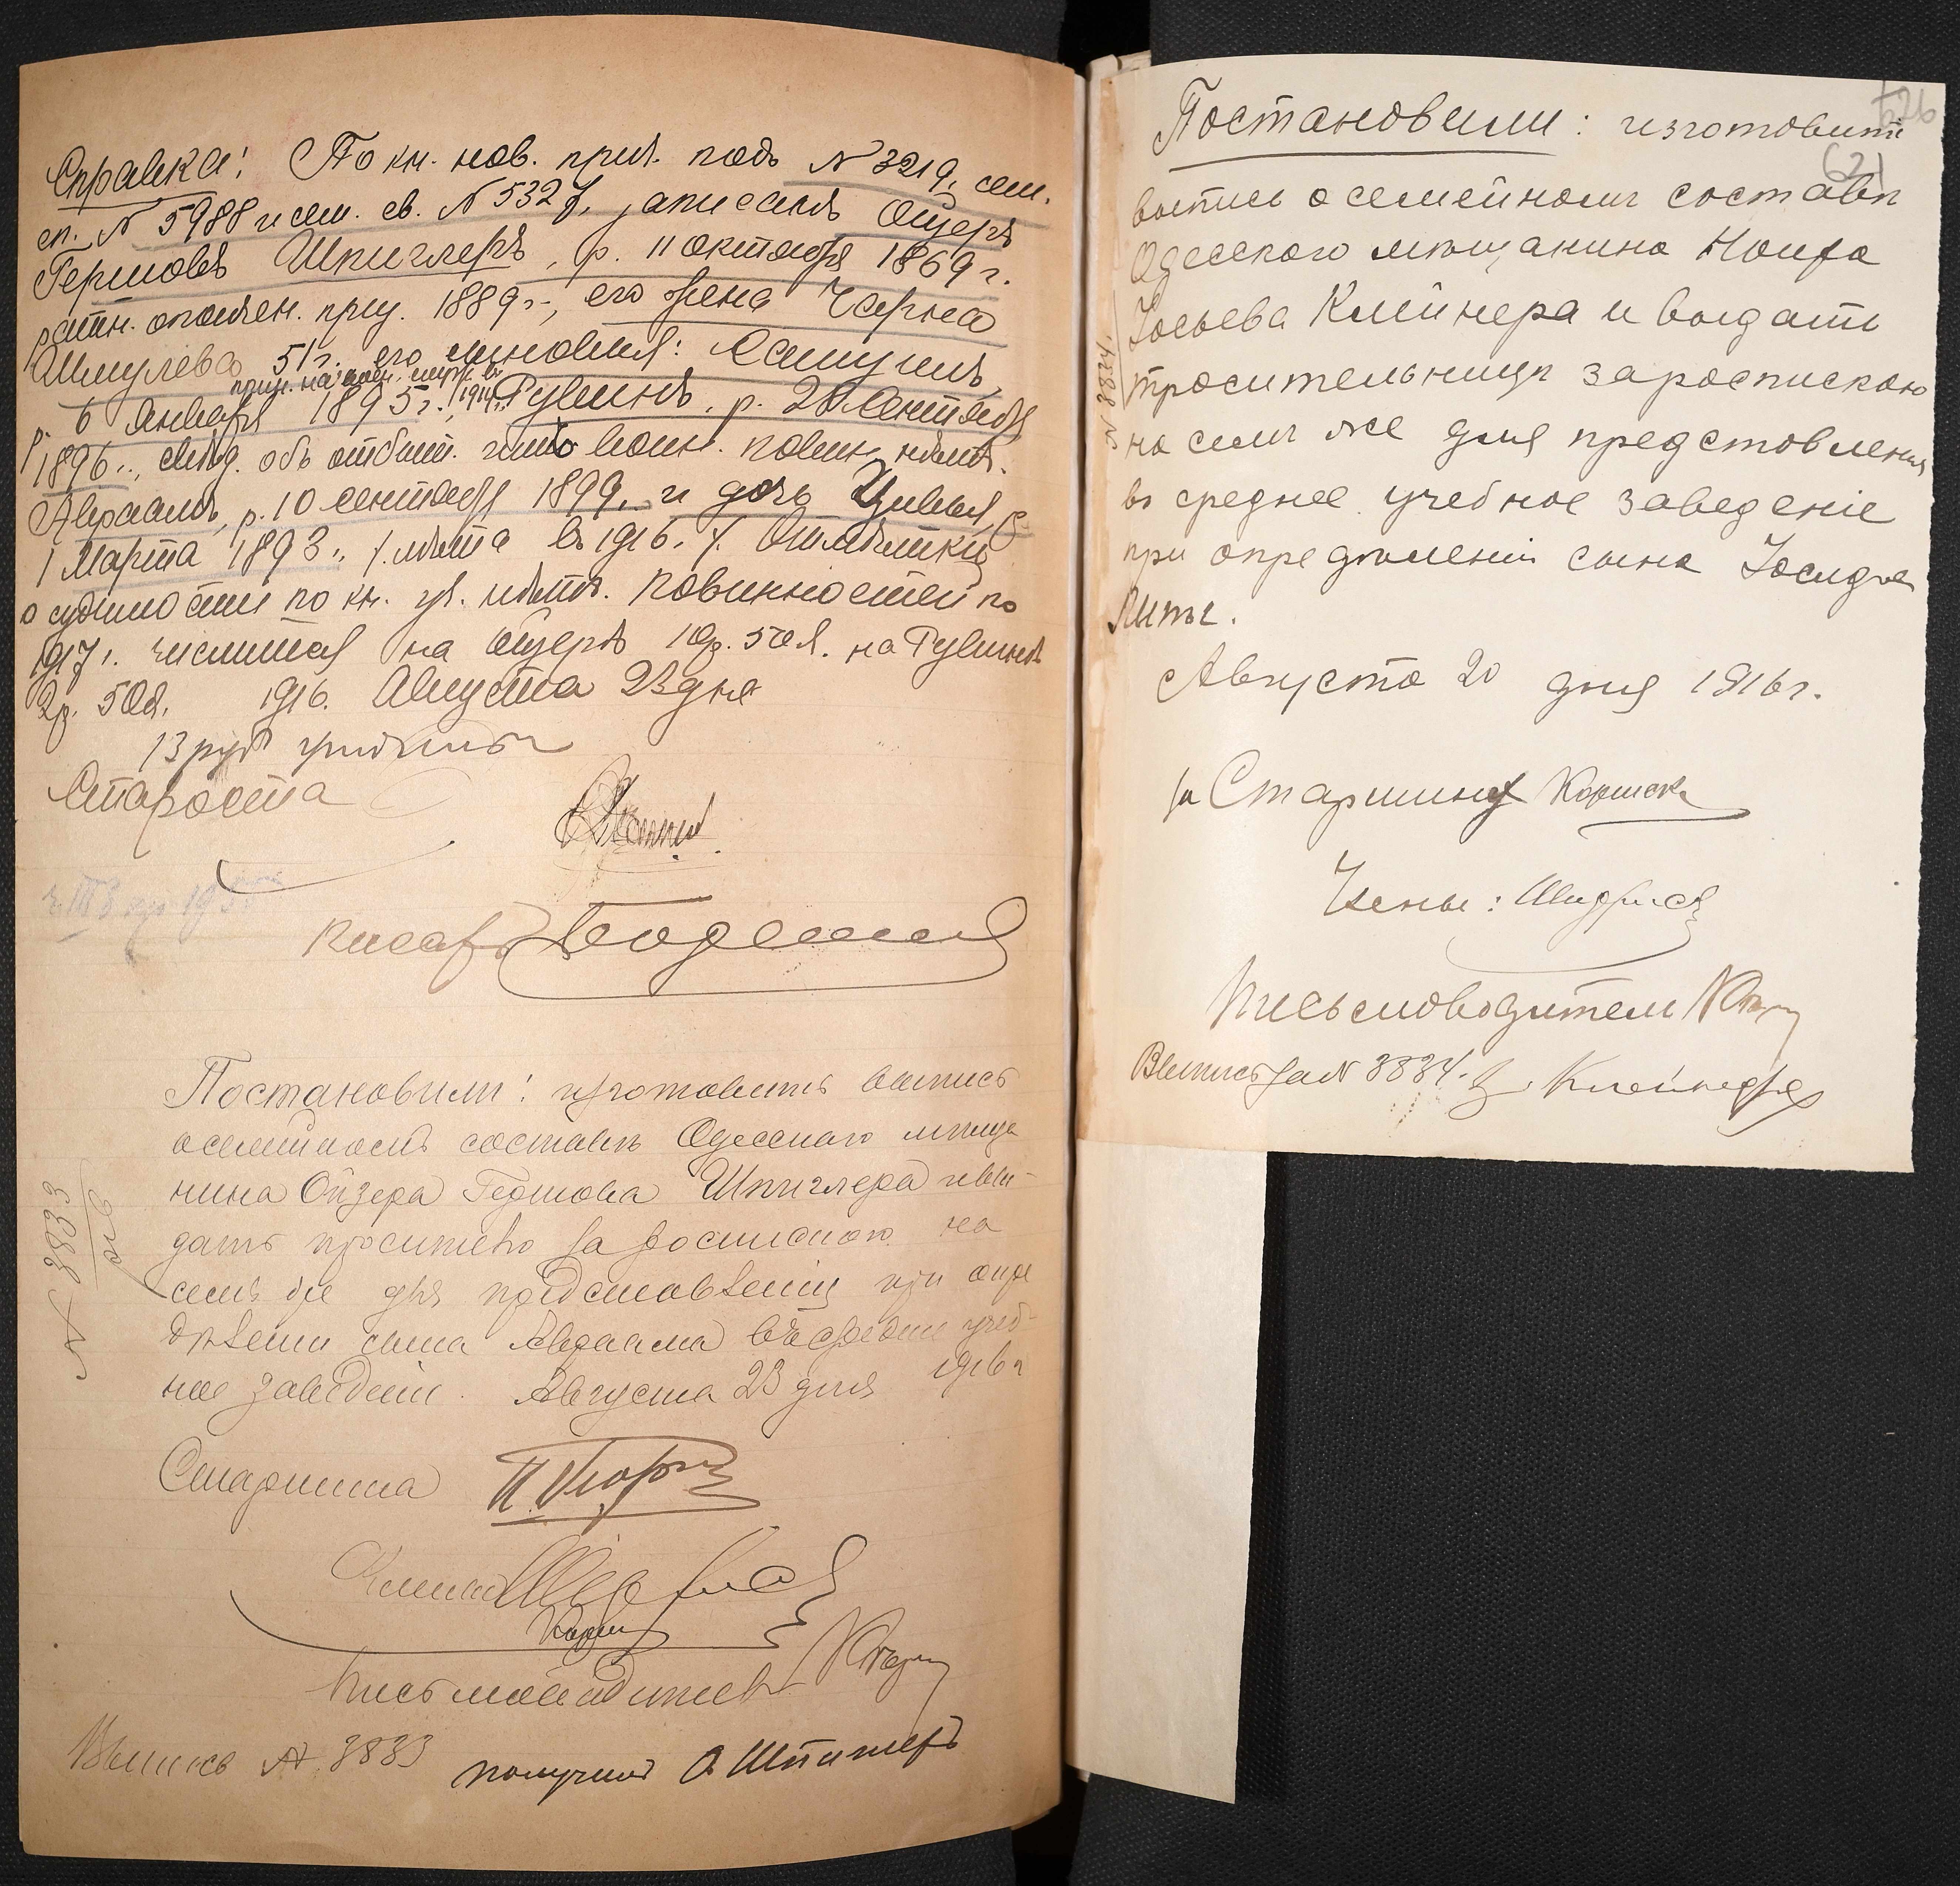 Справка: По кн. нов. прип. подъ № 3219, сем.
сп. № 5988 и сем. св. № 5327, записанъ Ойзеръ
Гершовъ Шпиглеръ, р. 11 октября 1869 г.
ратн. ополчен. приз. 1889 г., его жена Черна
Шмулева 51 г. его сыновья: Самуилъ,
р. 6 Января 1895 г., прин. на воен. службу въ 1914 г. Рувинъ, р. 20 Сентября
1896 г., свид. объ отбыт. воин. повин. нѣтъ.
Авраамъ, р. 10 сентября 1899 г. и дочь Цивья, р.
1 Марта 1893 г. /. лѣта въ 1916 г. /. Отмѣтки
о судимости по кн. нѣтъ. Повинностей по
1917 г. числится на Ойзерѣ 10 р. 50 к. на Рувинѣ
2 р. 50 к. 1916 г. Августа 23 дня
13 руб
Староста
Писарь
Постановили: изготовить выпись
о семейномъ составѣ Одесскаго мѣща
нина Ойзера Гершова Шпиглера и вы-
дать просителю за роспискою на
семъ же для представленія при опре
дѣленіи сына Авраама въ среднее учеб-
ное заведеніе. Августа 23 дня 1916 г
№ 3833
Старшина
Члены
Письмоводитель
Выпись № 3833 получилъ О Шпиглеръ
626
621
Постановили: изготовить
выпись о семейномъ составѣ
Одесского мѣщанина
Іосьева Клейнера и выдать
просительницѣ за роспискою
на семъ же для представленія
въ среднее учебное заведеніе
при опредѣленіи сына
Августа 20 дня 1916 г.
№ 8834.
за Старшину
Члены:
Письмоводитель
Выпись за № 3834. Клейнера